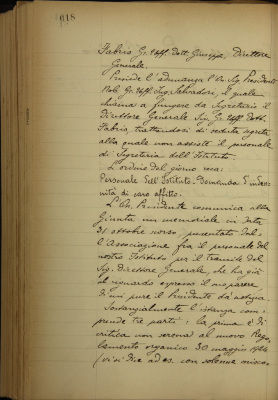 618
Fabris Gr. Uff. Dott. Giuseppe, Direttore
Generale.
Presiede l'adunanza l'On. Sig. Presidente
Nob. Gr. Uff. Ing. Salvadori, il quale
chiama a fungere da Segretario il
Direttore Generale Sig. Gr. Uff. Dott.
Fabris, trattandosi di seduta segreta
alla quale non assiste il personale
di Segreteria dell'Istituto.
L'ordine del giorno reca:
Personale dell'Istituto. Domanda d'inden-
nità di caro affitto.
L'On. Presidente comunica alla
Giunta un memoriale in data
31 ottobre scorso, presentato dal-
l'Associazione fra il personale del
nostro Istituto per il tramite del
Sig. Direttore Generale, che ha già
al riguardo espresso il suo parere,
di cui pure il Presidente dà lettura.
Sostanzialmente l'istanza com-
prende tre parti: la prima è di
critica non serena al nuovo Rego-
lamento organico 30 maggio 1924
(vi si dice ad es. con solenne